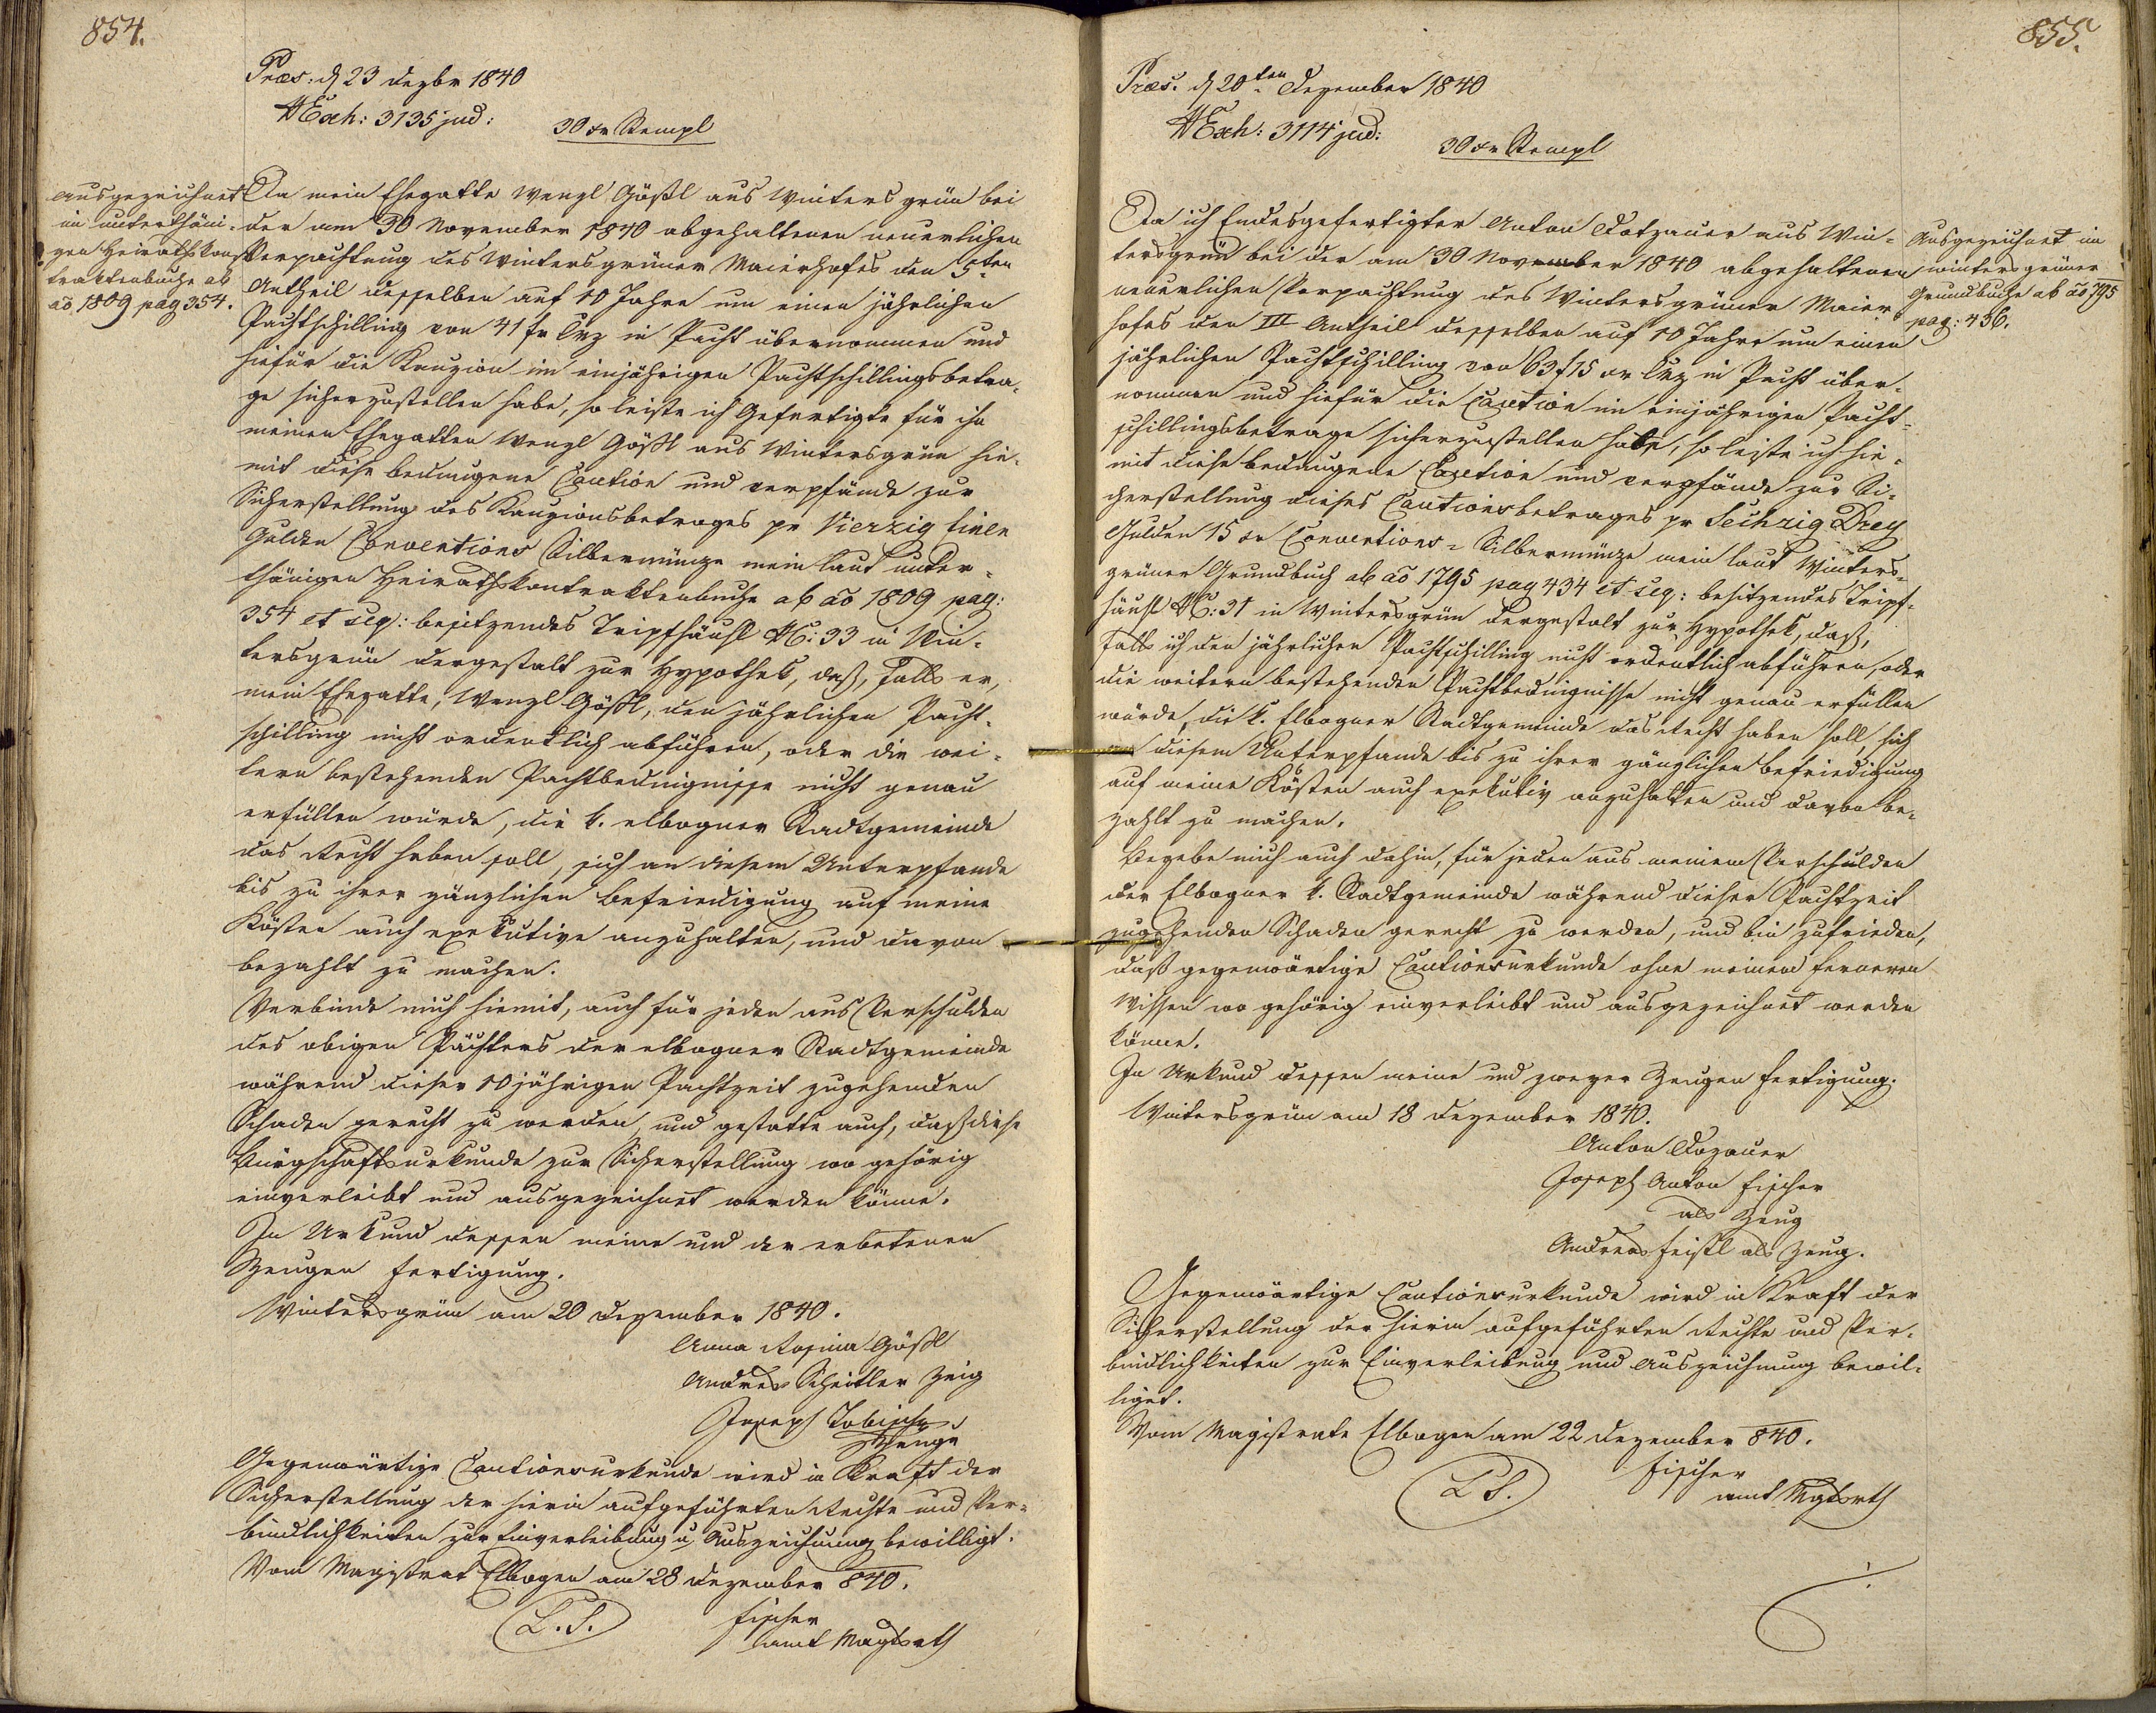 854.
Præs: d 23 Dezbr 1840
NExh: 3135 jud:
30 xr Stempl
Ausgezeichnet
im unterthäni-
gen Heirathskon-
traktenbuche ab
ao 1809 pag 354.
Da mein Ehegatte Wenzl Gößl aus Wintersgrün bei
der am 30 November 1840 abgehaltenen neuerlichen
Verpachtung des Wintersgrüner Maierhofes den 5ten
Antheil desselben auf 10 Jahre um einen jährlichen
Pachtschilling von 41 fr CMz in Pacht übernommen und
hiefür die Kauzion im einjährigen Pachtschillingsbetra-
ge sicherzustellen habe, so leiste ich Gefertigte für ihn
meinen Ehegatten Wenzl Gößl aus Wintersgrün hie-
mit diese bedungene Caution und verpfände zur
Sicherstellung des Kauzionsbetrages pr Vierzig Einen
Gulden Conventions Silbermünze mein laut unter-
thänigen Heirathskontraktenbuche ab ao 1809 pag:
354 et seq: besitzendes Tripfhäusl NC: 33 in Win-
tersgrün dergestalt zur Hypothek, daß, falls er,
mein Ehegatte, Wenzl Gößl, den jährlichen Pacht-
schilling nicht ordentlich abführen, oder die wei-
tern bestehenden Pachtbedingnisse nicht genau
erfüllen würde, die k. elbogner Stadtgemeinde
das Recht haben soll, sich an diesem Unterpfande
bis zu ihrer gänzlichen Befriedigung auf meine
Kösten auch exekutive anzuhalten, und davon
bezahlt zu machen.
Verbinde mich hiemit, auch für jeden aus Verschulden
des obigen Pächters der elbogner Stadtgemeinde
während dieser 10 jährigen Pachtzeit zugehenden
Schaden gerecht zu werden, und gestatte auch, daß diese
Bürgschaftsurkunde zur Sicherstellung wo gehörig
einverleibt und ausgezeichnet werden könne.
In Urkund dessen meine und der erbetenen
Zeugen Fertigung.
Wintersgrün am 20 Dezember 1840.
Anna Rosina Gößl
Andreas Scheitler Zeig
Joseph Tobisch
Zeuge
Gegenwärtige Cautionsurkunde wird in Kraft der
Sicherstellung der hierin aufgeführten Rechte und Ver-
bindlichkeiten zur Einverleibung u. Auszeichnung bewilligt.
Vom Magistrat Elbogen am 28 Dezember 840.
L.S.
Fischer
amt Magtsrth
855.
Præs: d 20ten Dezember 1840
NExh: 3114 jud:
30 xr Stempl
Da ich Endesgefertigter Anton Dotzauer aus Win-
tersgrün bei der am 30 November 1840 abgehaltenen
neuerlichen Verpachtung des Wintersgrüner Maier-
hofes den III Antheil desselben auf 10 Jahre um einen
jährlichen Pachtschilling von 63 f 15 xr CMz in Pacht über-
nommen und hiefür die Caution im einjährigen Pacht-
schillingsbetrage sicherzustellen habe, so leiste ich hie-
mit diese bedungene Caution und verpfände zur Si-
cherstellung dieses Cautionsbetrages pr Sechzig Drey
Gulden 15 xr Conventions-Silbermünze mein laut Winters-
grüner Grundbuch ab ao 1795 pag 434 et seq: besitzendes Tripf-
häusl NC: 31 in Wintersgrün dergestalt zur Hypothek, daß,
falls ich den jährlichen Pachtschilling nicht ordentlich abführen, oder
die weitern bestehenden Pachtbedingnisse nicht genau erfüllen
würde, die k. Elbogner Stadtgemeinde das Recht haben soll, sich
an diesem Unterpfande bis zu ihrer gänzlichen Befriedigung
auf meine Kösten auch exekutiv anzuhalten und davon be-
zahlt zu machen.
Begebe mich auch dahin, für jeden aus meinem Verschulden
der Elbogner k. Stadtgemeinde während dieser Pachtzeit
zugehenden Schaden gerecht zu werden, und bin zufrieden,
daß gegenwärtige Cautionsurkunde ohne meinem ferneren
Wissen wo gehörig einverleibt und ausgezeichnet werden
könne.
In Urkund dessen meine und zweyer Zeugen Fertigung.
Wintersgrün am 18 Dezember 1840.
Anton Dozauer
Joseph Anton Fischer
als Zeug
Andreas Feistl als Zeug.
Gegenwärtige Cautionsurkunde wird in Kraft der
Sicherstellung der hierin aufgeführten Rechte und Ver-
bindlichkeiten zur Einverleibung und Auszeichnung bewil-
liget.
Vom Magistrate Elbogen am 22 Dezember 840.
L S.
Fischer
amt Mgtsrth
Ausgezeichnet im
wintersgrüner
Grundbuche ab ao 795
pag: 436.